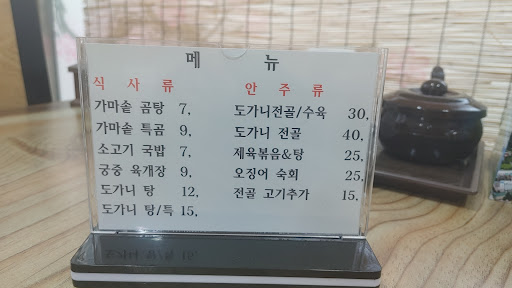 메 뉴
식 사 류
가마솥 곰탕 7,
가마솥 특곰 9,
소고기 국밥 7,
궁중 육개장 9,
도가니 탕 12,
도가니 탕/특 15,
안 주 류
도가니전골/수육 30,
도가니 전골 40,
제육볶음&탕 25,
오징어 숙회 25,
전골 고기추가 15,